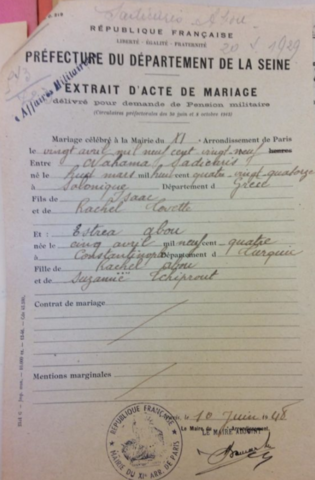 Sadicaris & Abou
20 4 1929
RÉPUBLIQUE FRANÇAISE
LIBERTÉ - ÉGALITÉ - FRATERNITÉ
PRÉFECTURE DU DÉPARTEMENT DE LA SEINE
Affaires Militaires
EXTRAIT D'ACTE DE MARIAGE
délivré pour demande de Pension militaire
Mariage célébré à la Mairie du XI Arrondissement de Paris
le vingt avril mil neuf cent vingt neuf
Entre Sadicaris
né le huit mars mil huit cent quatre vingt quatorze
à Salonique Département d Grèce
Fils de Isaac
et de Rachel
Et : Estréa Abou
née le cinq avril mil neuf cent quatre
à Constantinople Département d Turquie
Fille de Rachel Abou
et de Suzanne Tchiprout
Contrat de mariage
Mentions marginales
le 10 Juin 1948
Le Maire du Arrondissement,
LE MAIRE ADJOINT
RÉPUBLIQUE FRANÇAISE
MAIRIE DU XIe ARR. DE PARIS